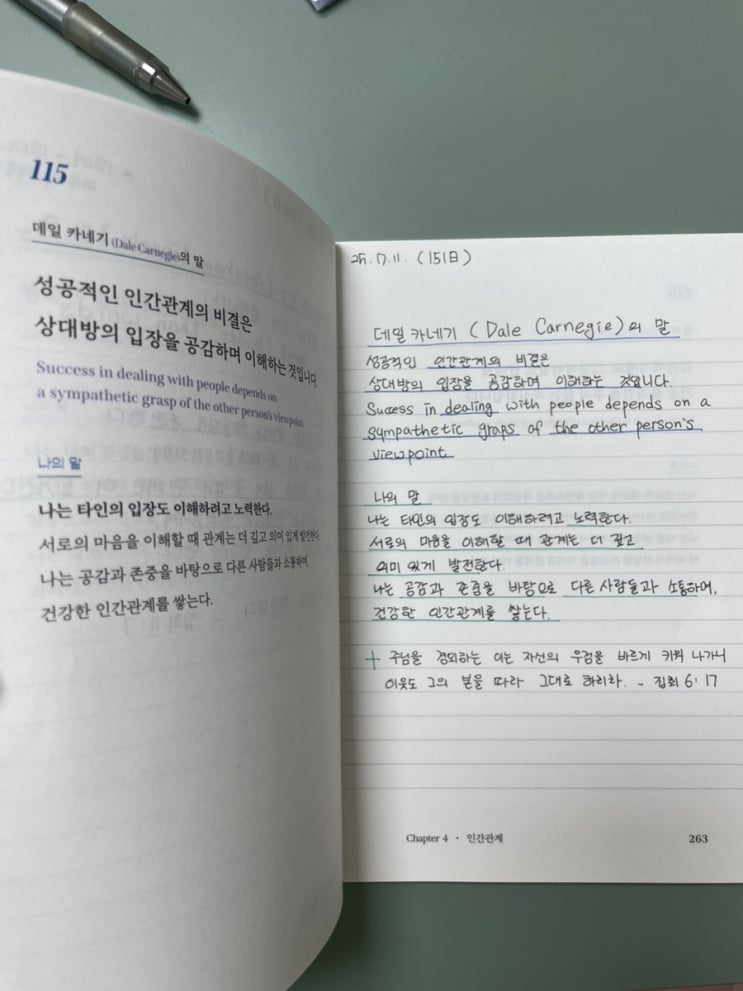 115
데일 카네기(Dale Carnegie)의 말
성공적인 인간관계의 비결은
상대방의 입장을 공감하며 이해하는 것입니다.
Success in dealing with people depends on
a sympathetic grasp of the other person's viewpoint.
나의 말
나는 타인의 입장도 이해하려고 노력한다.
서로의 마음을 이해할 때 관계는 더 깊고 의미 있게 발전한다.
나는 공감과 존중을 바탕으로 다른 사람들과 소통하며,
건강한 인간관계를 쌓는다.
25.7.11. (151日)
데일 카네기 (Dale Carnegie)의 말
성공적인 인간관계의 비결은
상대방의 입장을 공감하며 이해하는 것입니다.
Success in dealing with people depends on a
sympathetic graps of the other person's
viewpoint.
나의 말
나는 타인의 입장도 이해하려고 노력한다.
서로의 마음을 이해할 때 관계는 더 깊고
의미 있게 발전한다.
나는 공감과 존중을 바탕으로 다른 사람들과 소통하며,
건강한 인간관계를 쌓는다.
+ 주님을 경외하는 이는 자신의 우정을 바르게 키워 나가니
이웃도 그의 본을 따라 그대로 하리라. - 집회 6:17
Chapter 4 · 인간관계
263